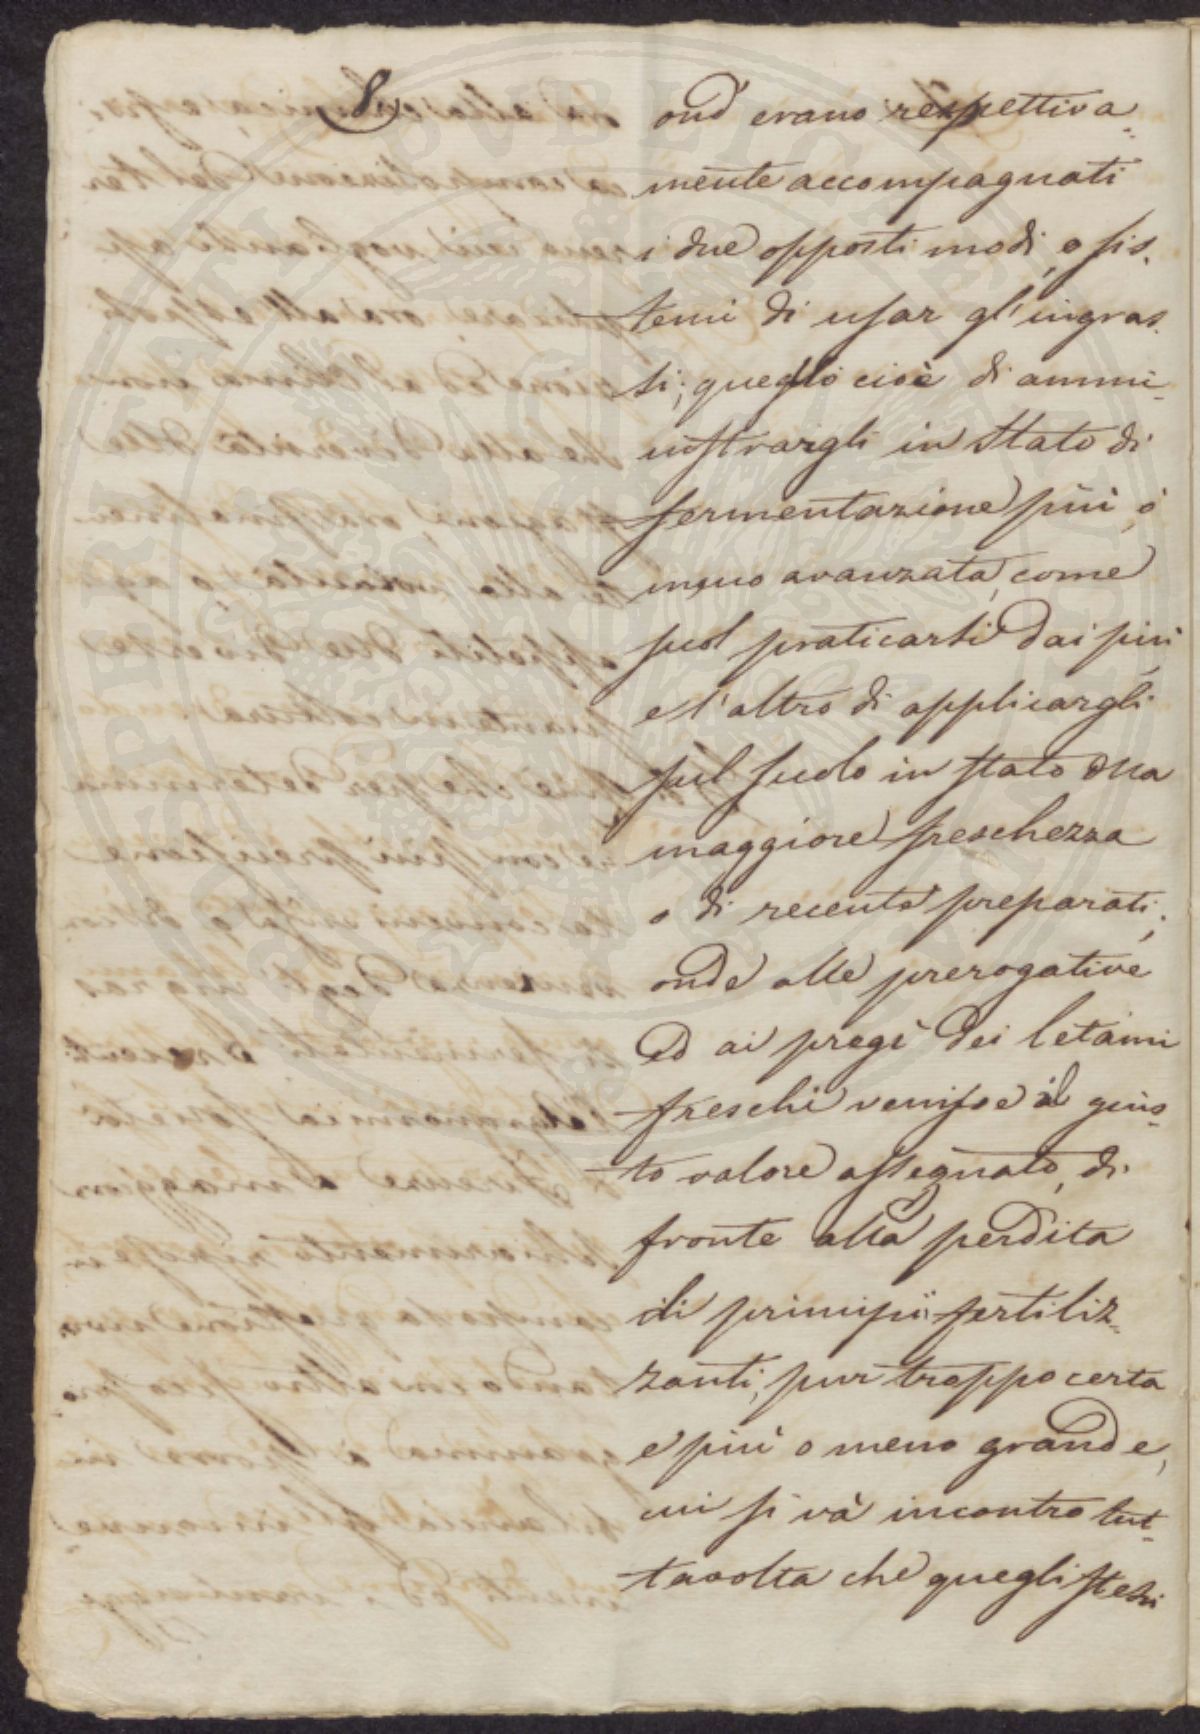 8
ond' erano respettiva-
mente accompagnati
i due opposti modi, o sis-
temi di usar gl'ingras-
si; quello cioè di ammi-
nistrargli in stato di
fermentazione più, o
meno avanzata, come
suol praticarsi dai più,
e l'altro di applicargli
sul suolo in stato della
maggiore freschezza
o di recente preparati;
onde alle prerogative
ed ai pregi dei letami
freschi venisse il gius-
to valore assegnato, di
fronte alla perdita
di principii fertiliz-
zanti, pur troppo certa
e più o meno grande,
cui si và incontro tut-
tavolta che quegli stessi